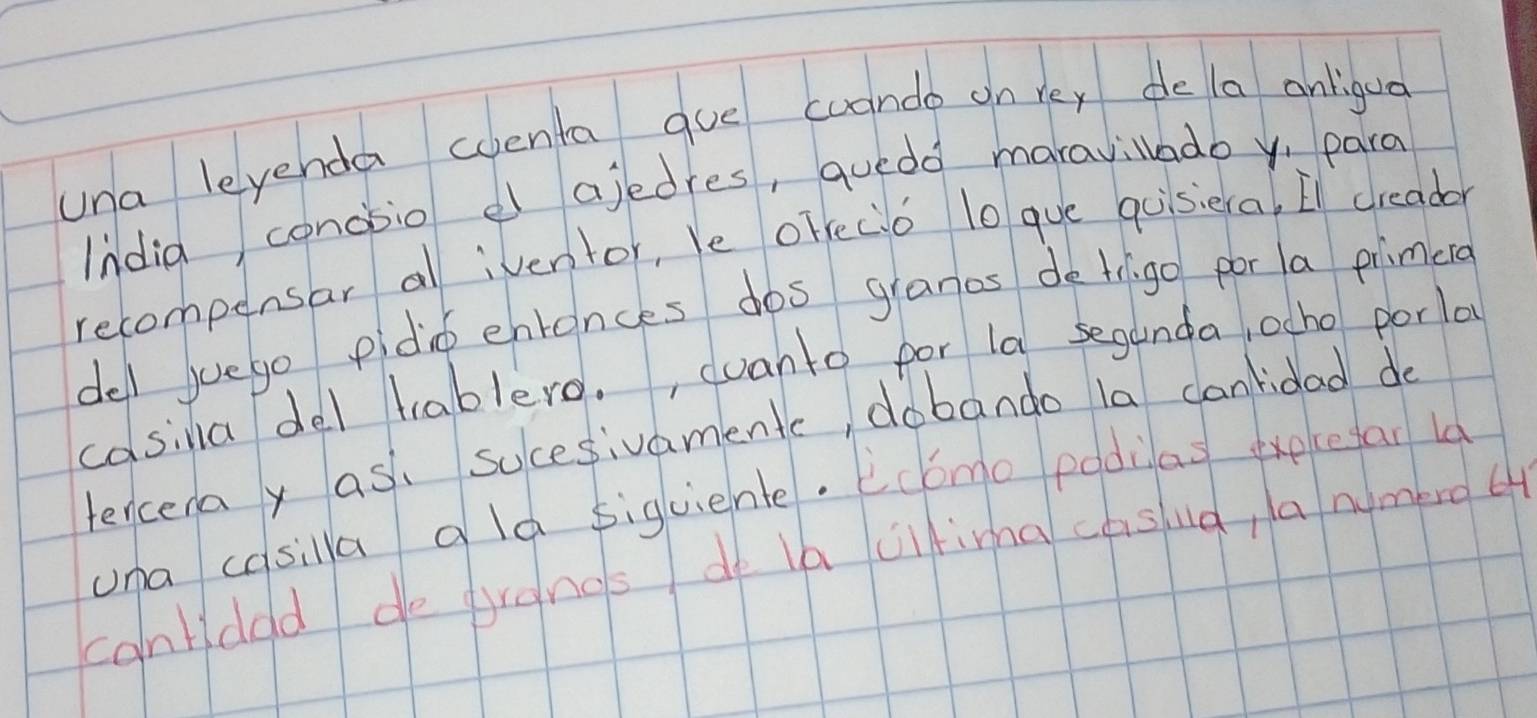 una leyenda cuenta que cuando un rey de la antigua
India, conosio el ajedres, quedó maravillado y, para
recompensar al iventor, le ofreció lo que quisiera, El creador
del juego pidió entonces dos granos de trigo por la primera
casilla del trablero., cuanto por la segunda, ocho por la
tercera y así sucesivamente, dobando la cantidad de
una casilla a la siguiente. ¿cómo podrías expresar la
cantidad de granos, de la última casilla, la numero 64